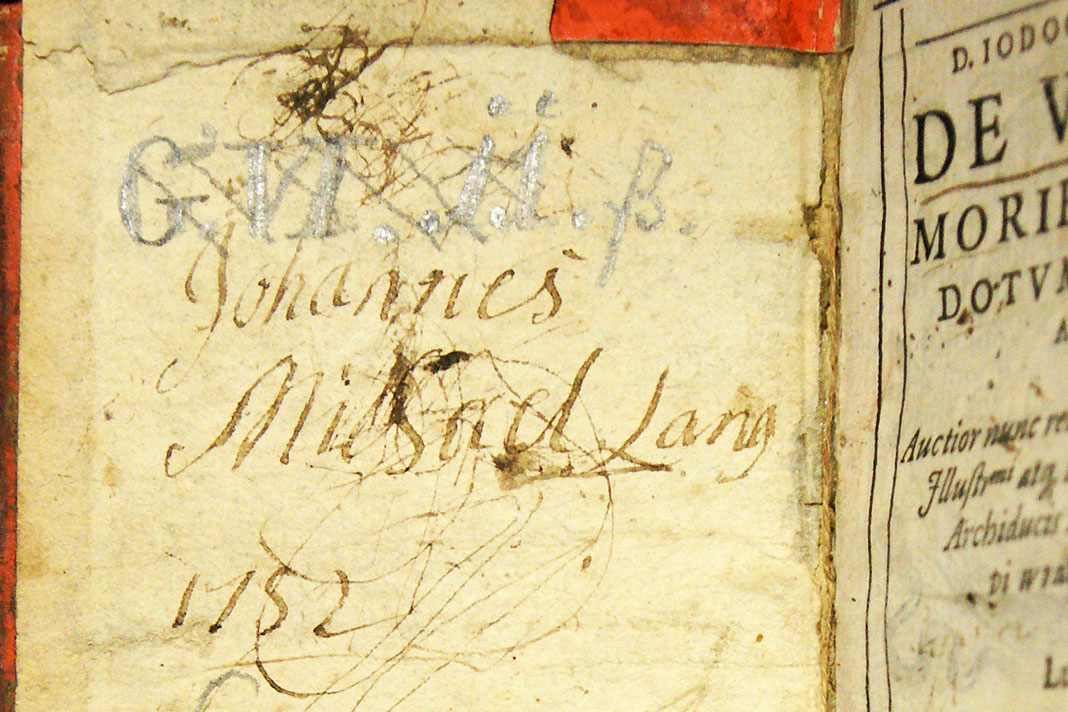 G.VI..ii.β.
Johannes
Michael Lang
1752
D. IODO
DE V
MORI
DOTVM
A
Auctior nunc re
Illustrmi atq.
Archiducis